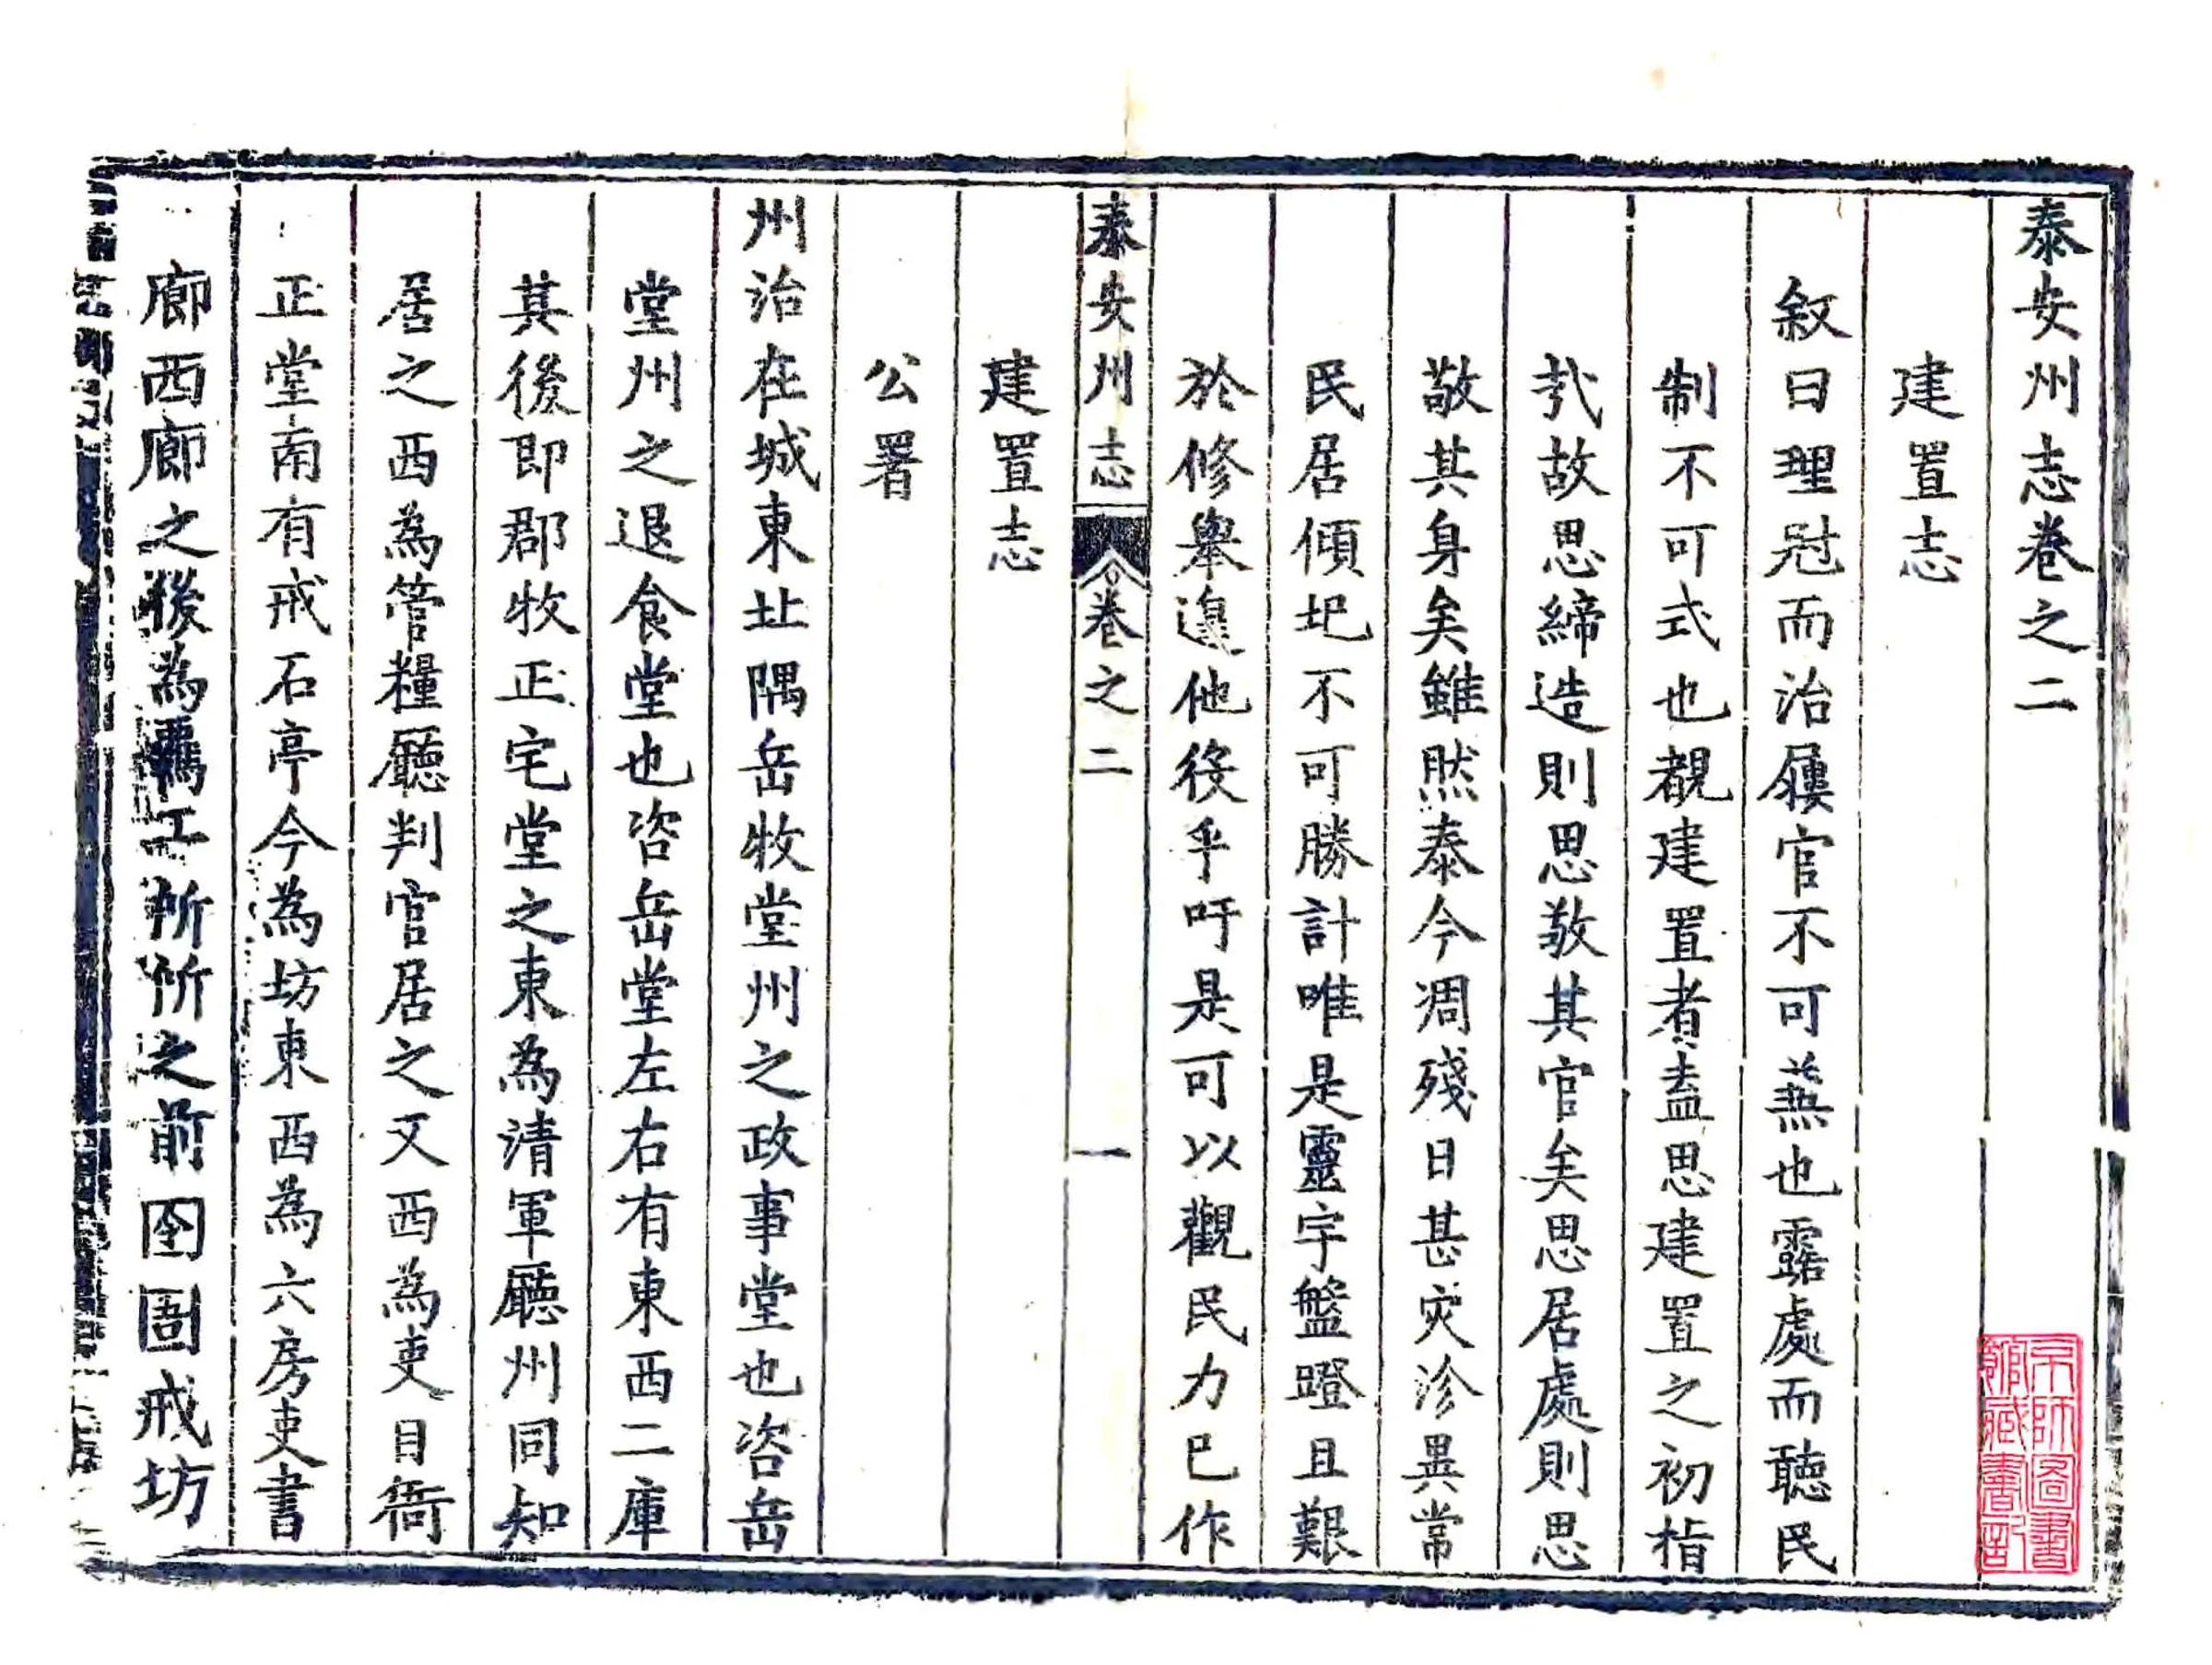 泰安州志卷之二
建置志
叙曰理冠而治屨官不可燕也露處而聽民
制不可式也覩建置者盍思建置之初指
哉故思締造則思敬其官矣思居處則思
敬其身矣雖然泰今凋殘日甚灾沴異常
民居傾圯不可勝計唯是靈宇盤蹬且艱
於修舉遑他役乎吁是可以觀民力巳作
建置志
泰安州志 卷之二 一
公署
州治在城東北隅岳牧堂州之政事堂也咨岳
堂州之退食堂也咨岳堂左右有東西二庫
其後即郡牧正宅堂之東為清軍廳州同知
居之西為管糧廳判官居之又西為吏目衙
正堂南有戒石亭今為坊東西為六房吏書
廊西廊之後為工所所之前囹圄戒坊